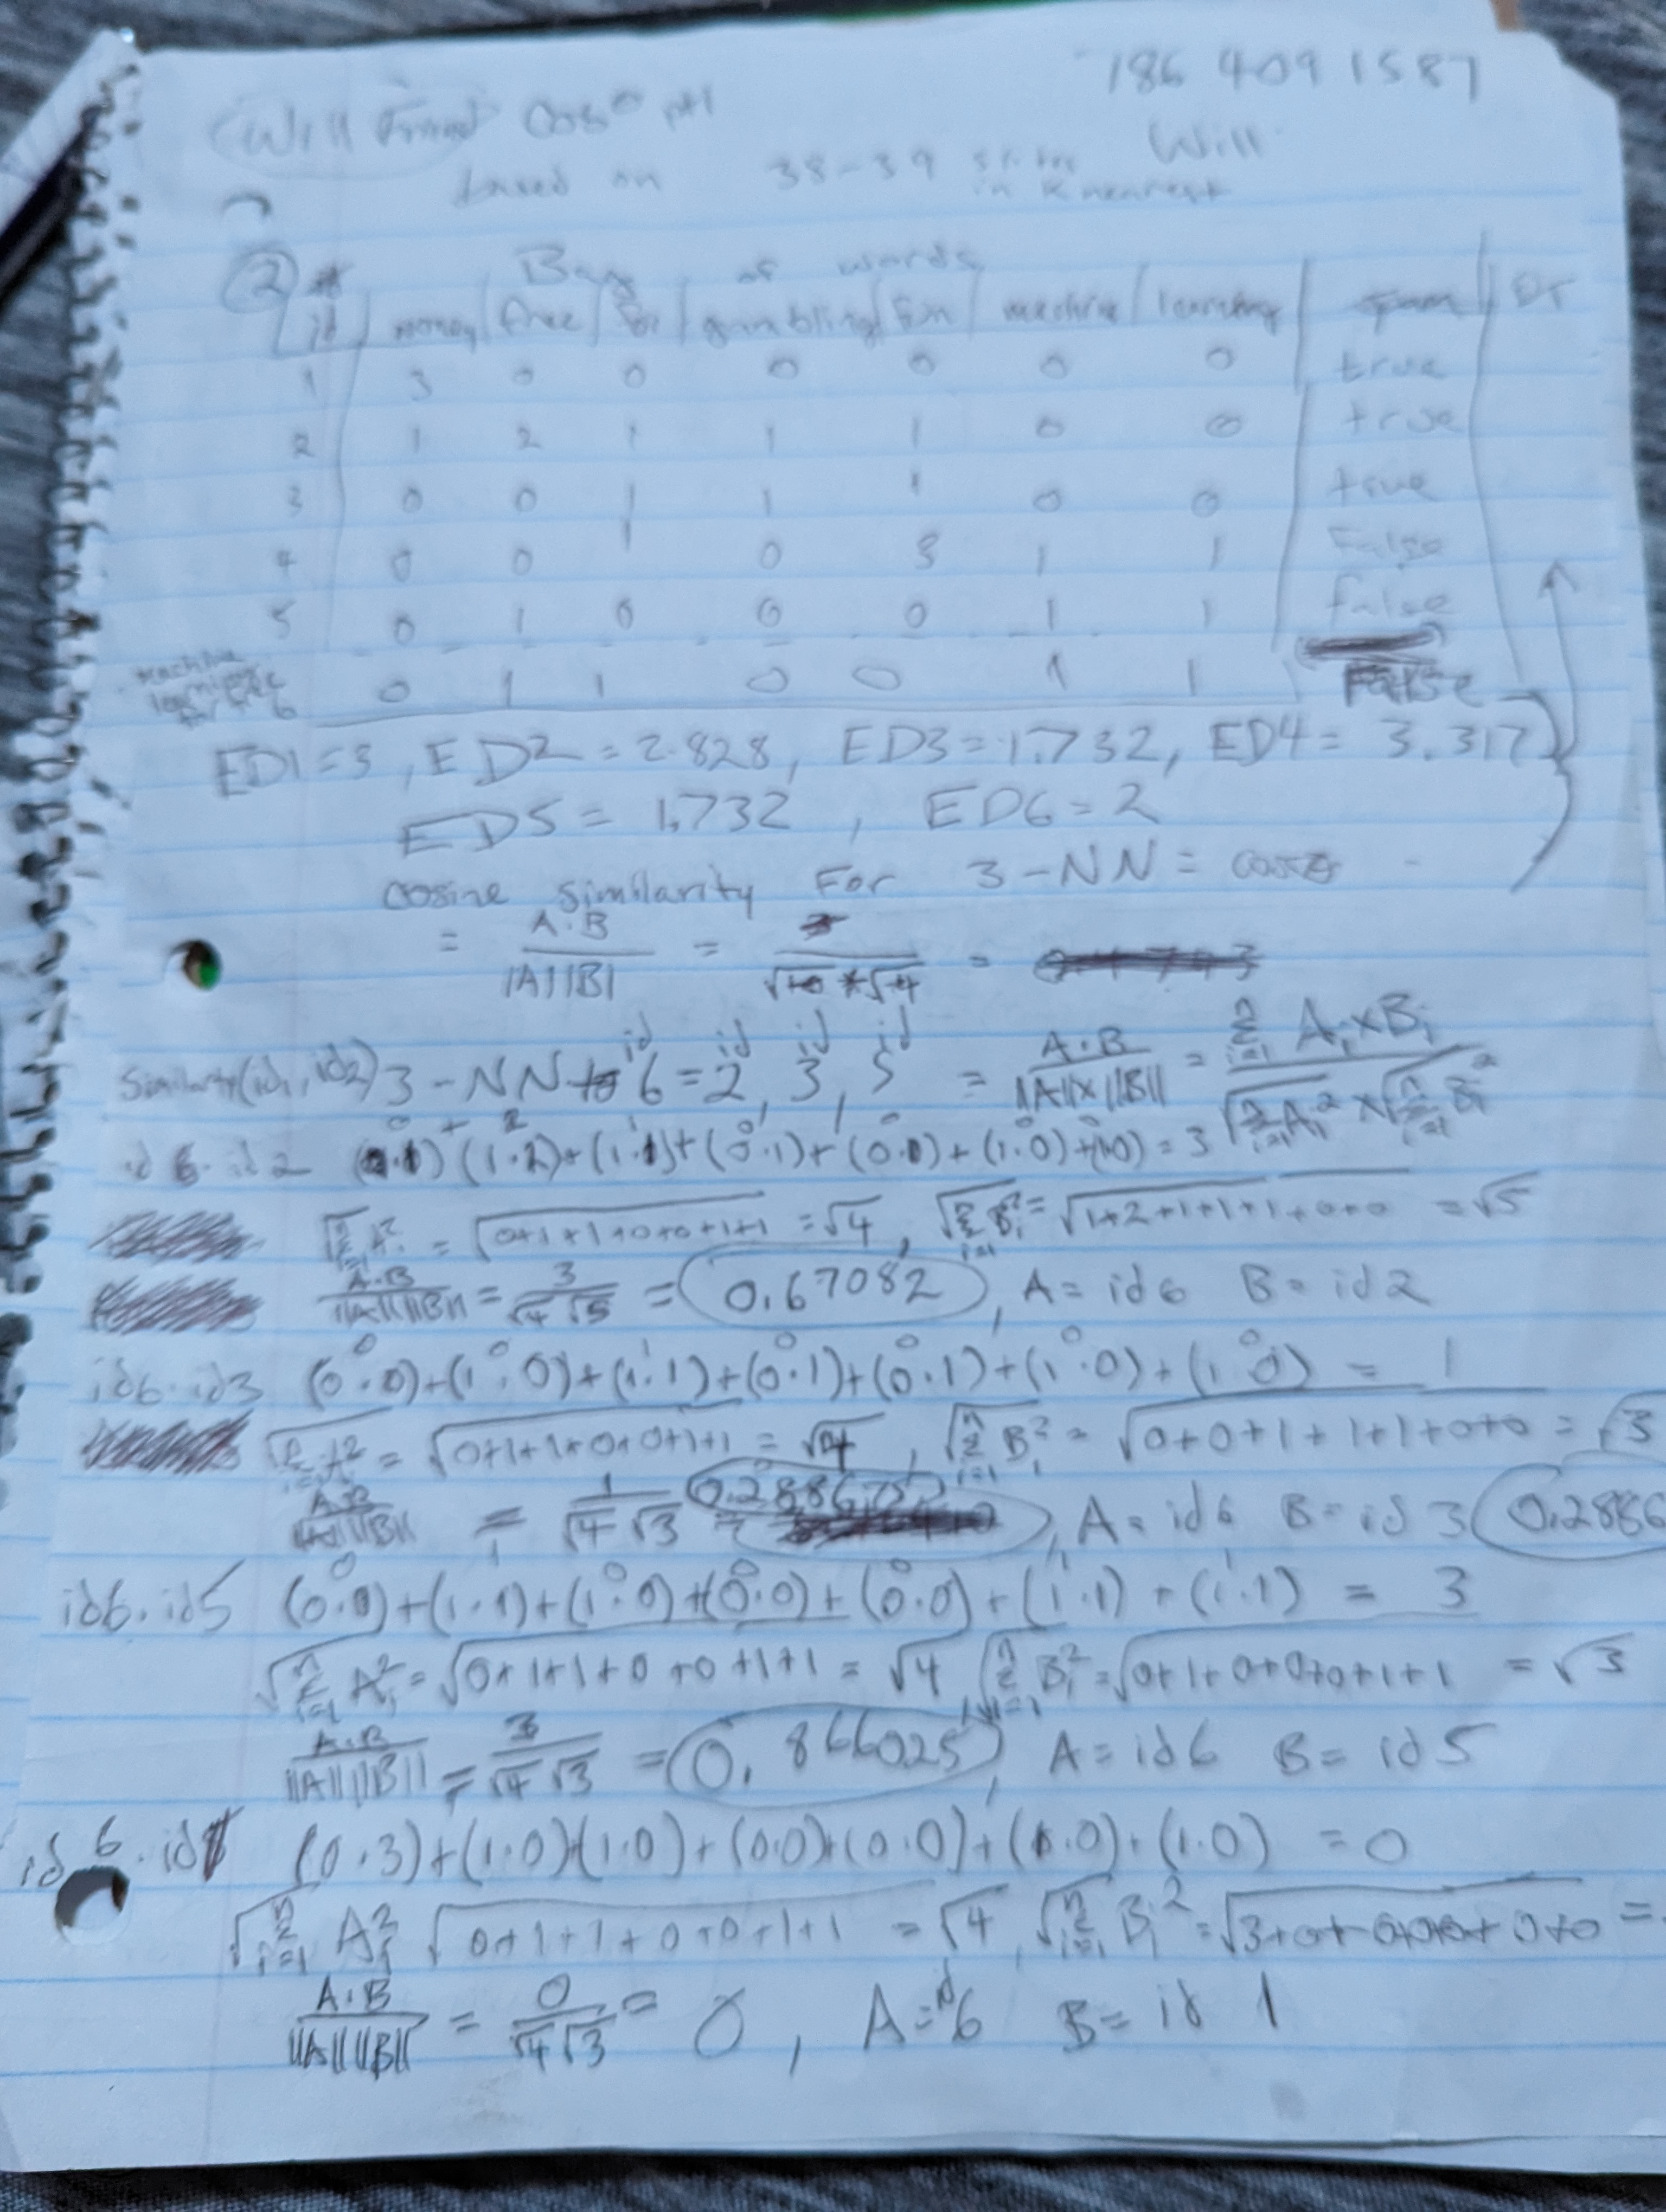 186 409 1587
Will cosθ pt1 Will
based on 38-39 slides
in K nearest
② Bag of words
id | money | free | for | gambling | fun | machine | learning | spam | DT
1 3 0 0 0 0 0 0 true
2 1 2 1 1 1 0 0 true
3 0 0 1 1 1 0 0 true
4 0 0 1 0 3 1 1 False
5 0 1 0 0 0 1 1 false
machine
learning
for free
6 0 1 1 0 0 1 1 False
ED1=3, ED2=2.828, ED3=1.732, ED4=3.317
ED5=1.732, ED6=2
cosine similarity For 3-NN = cosθ
= A·B / |A||B| = / √10 * √4 =
Similarity(id1, id2) 3-NN to id 6 = id 2, id 3, id 5 = A·B / ||A||x||B|| = Σ i=1 n Ai x Bi / √Σ i=1 n Ai² x √Σ i=1 n Bi²
id 6 · id 2 (0·1)+(1·2)+(1·1)+(0·1)+(0·1)+(1·0)+(1·0) = 3
√Σ i=1 n Ai² = √0+1+1+0+0+1+1 = √4, √Σ i=1 n Bi² = √1+2+1+1+1+0+0 = √5
A·B / ||A|| ||B|| = 3 / √4 √5 = 0.67082, A = id6 B = id2
id6·id3 (0·0)+(1·0)+(1·1)+(0·1)+(0·1)+(1·0)+(1·0) = 1
√Σ i=1 n Ai² = √0+1+1+0+0+1+1 = √4, √Σ i=1 n Bi² = √0+0+1+1+1+0+0 = √3
A·B / ||A|| ||B|| = 1 / √4 √3 = 0.288675, A = id6 B = id 3 0.2886
id6·id5 (0·0)+(1·1)+(1·0)+(0·0)+(0·0)+(1·1)+(1·1) = 3
√Σ i=1 n Ai² = √0+1+1+0+0+1+1 = √4, √Σ i=1 n Bi² = √0+1+0+0+0+1+1 = √3
A·B / ||A|| ||B|| = 3 / √4 √3 = 0.866025, A = id6 B = id5
id 6·id1 (0·3)+(1·0)+(1·0)+(0·0)+(0·0)+(1·0)+(1·0) = 0
√Σ i=1 n Ai² √0+1+1+0+0+1+1 = √4, √Σ i=1 n Bi² = √3+0+0+0+0+0+0 =
A·B / ||A|| ||B|| = 0 / √4 √3 = 0, A = id 6 B = id 1